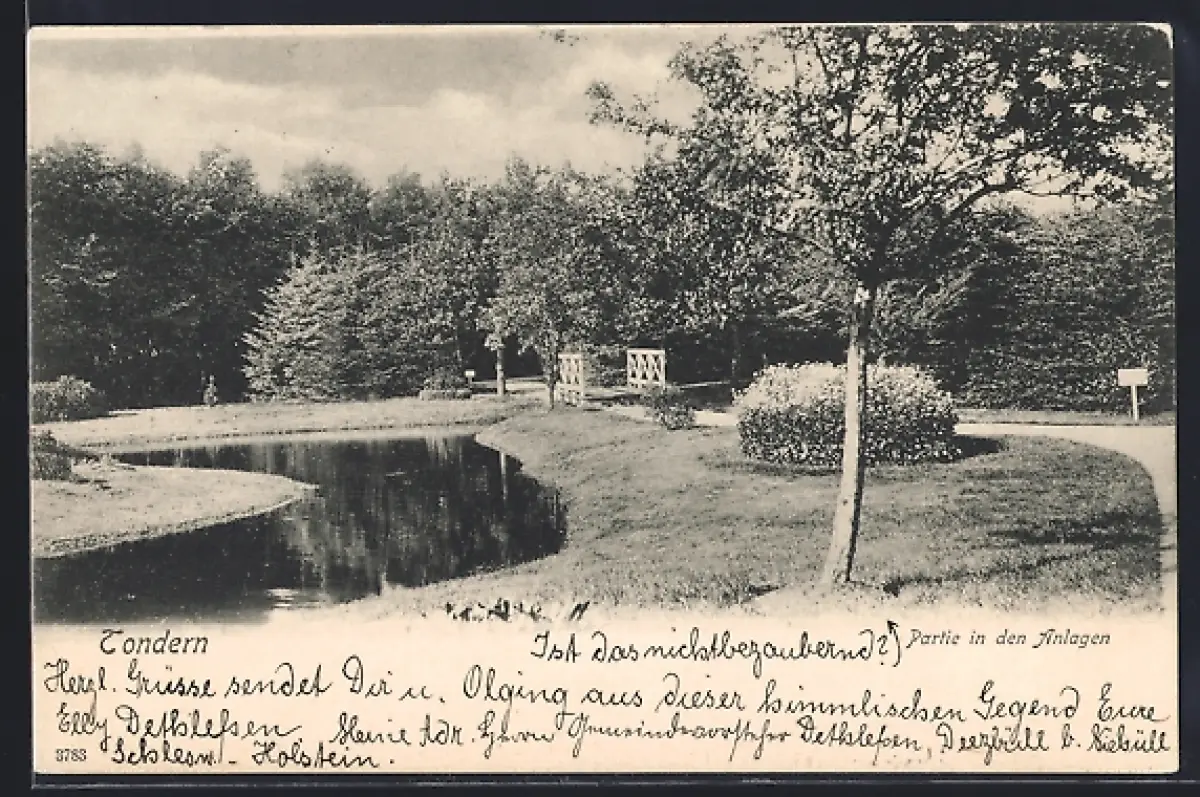 Tondern
Ist das nicht bezaubernd?
Partie in den Anlagen
Herzl. Grüsse sendet Dir u. Olging aus dieser himmlischen Gegend Eure
Elly Dethlefsen. Meine Adr. Herrn Gemeindevorsteher Dethlefsen, Deezbüll b. Niebüll
3783 Schlesw. - Holstein.